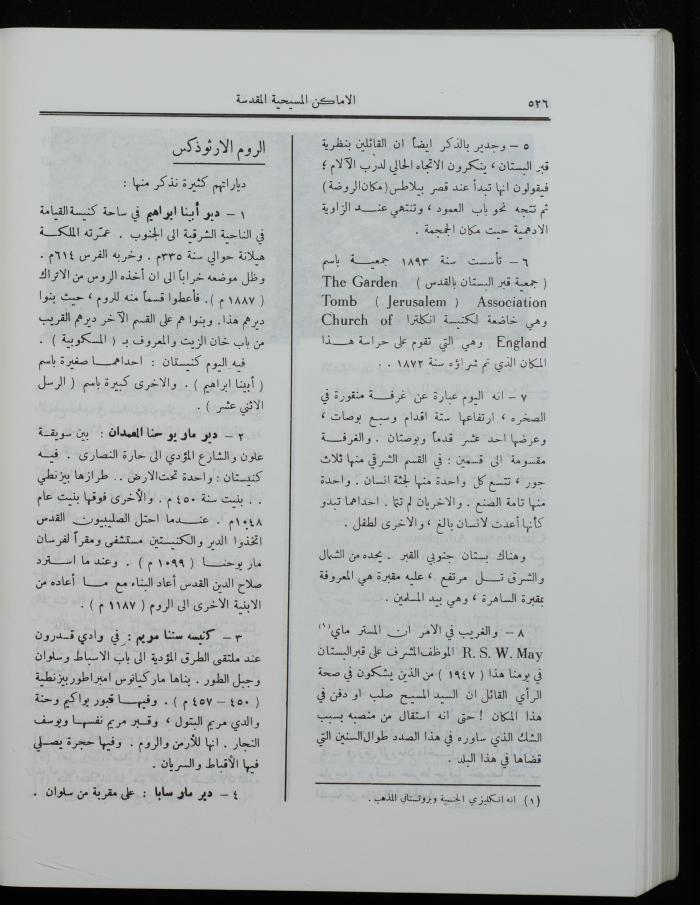 ٥٢٦
الاماكن المسيحية المقدسة
٥ – وجدير بالذكر ايضاً ان القائلين بنظرية
قبر البستان ، ينكرون الاتجاه الحالي لدرب الآلام ؛
فيقولون انها تبدأ عند قصر بيلاطس (مكان الروضة)
ثم تتجه نحو باب العمود ، وتنتهي عند الزاوية
الادهمية حيث مكان الجمجمة .
٦ – تأسست سنة ١٨٩٣ جمعية باسم
( جمعية قبر البستان بالقدس ) The Garden
Tomb ( Jerusalem ) Association
وهي خاضعة لكنيسة انكلترا Church of
England وهي التي تقوم على حراسة هذا
المكان الذي تم شراؤه سنة ١٨٧٢ . .
٧ – انه اليوم عبارة عن غرفة منقورة في
الصخره ، ارتفاعها ستة اقدام وسبع بوصات ،
وعرضها احد عشر قدماً وبوصتان . والغرفة
مقسومة الى قسمين : في القسم الشرقي منها ثلاث
جور ، تتسع كل واحدة منها لجثة انسان . واحدة
منها تامة الصنع . والاخريان لم تتما . احداهما تبدو
كأنها أعدت لانسان بالغ ، والاخرى لطفل .
وهناك بستان جنوبي القبر . يحده من الشمال
والشرق تل مرتفع ، عليه مقبرة هي المعروفة
بمقبرة الساهرة ، وهي بيد المسلمين .
٨ – والغريب في الامر ان المستر ماي(١)
R. S. W. May الموظف المشرف على قبر البستان
في يومنا هذا ( ١٩٤٧ ) من الذين يشكون في صحة
الرأي القائل ان السيد المسيح صلب او دفن في
هذا المكان ! حتى انه استقال من منصبه بسبب
الشك الذي ساوره في هذا الصدد طوال السنين التي
قضاها في هذا البلد .
(١) انه انكليزي الجنسية وبروتستاني المذهب .
الروم الارثوذكس
دياراتهم كثيرة نذكر منها :
١ – دير أبينا ابراهيم في ساحة كنيسة القيامة
في الناحية الشرقية الى الجنوب . عمّرته الملكة
هيلانة حوالي سنة ٣٣٥م . وخربه الفرس ٦١٤م .
وظل موضعه خراباً الى ان أخذه الروس من الاتراك
( ١٨٨٧ م ) . فأعطوا قسماً منه للروم ، حيث بنوا
ديرهم هذا. وبنوا هم على القسم الآخر ديرهم القريب
من باب خان الزيت والمعروف بـ ( المسكوبية ) .
فيه اليوم كنيستان : احداهما صغيرة باسم
( أبينا ابراهيم ) . والاخرى كبيرة باسم ( الرسل
الاثني عشر ) .
٢ – دير مار يوحنا المعمدان : بين سويقة
علون والشارع المؤدي الى حارة النصارى . فيه
كنيستان : واحدة تحت الارض .. طرازها بيزنطي
. . بنيت سنة ٤٥٠ م . والأخرى فوقها بنيت عام
١٠٤٨م . عندما احتل الصليبيون القدس
اتخذوا الدير والكنيستين مستشفى ومقراً لفرسان
مار يوحنا ( ١٠٩٩ م ) . وعند ما استرد
صلاح الدين القدس أعاد البناء مع ما أعاده من
الابنية الاخرى الى الروم ( ١١٨٧ م ) .
٣ – كنيسه ستنا مريم : في وادي قدرون
عند ملتقى الطرق المؤدية الى باب الاسباط وسلوان
وجبل الطور . بناها ماركيانوس امبراطور بيزنطية
( ٤٥٠ – ٤٥٧ م ) . وفيها قبور يواكيم وحنة
والدي مريم البتول ، وقبر مريم نفسها ويوسف
النجار . انها للأرمن والروم . وفيها حجرة يصلي
فيها الأقباط والسريان .
٤ – دير مار سابا : على مقربة من سلوان .